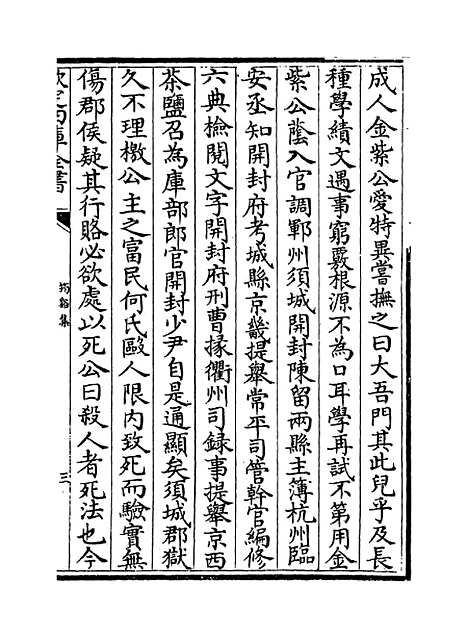 成人金紫公愛特異嘗撫之曰大吾門其此兒乎及長
種學績文遇事窮覈根源不為口耳學再試不第用金
紫公蔭入官調鄆州須城開封陳留兩縣主簿杭州臨
安丞知開封府考城縣京畿提舉常平司管幹官編修
六典檢閱文字開封府刑曹掾衢州司録事提舉京西
茶鹽召為庫部郎官開封少尹自是通顯矣須城郡獄
久不理檄公主之富民何氏毆人限内致死而驗實無
傷郡侯疑其行賂必欲處以死公曰殺人者死法也今
欽定四庫全書
筠谿集
三